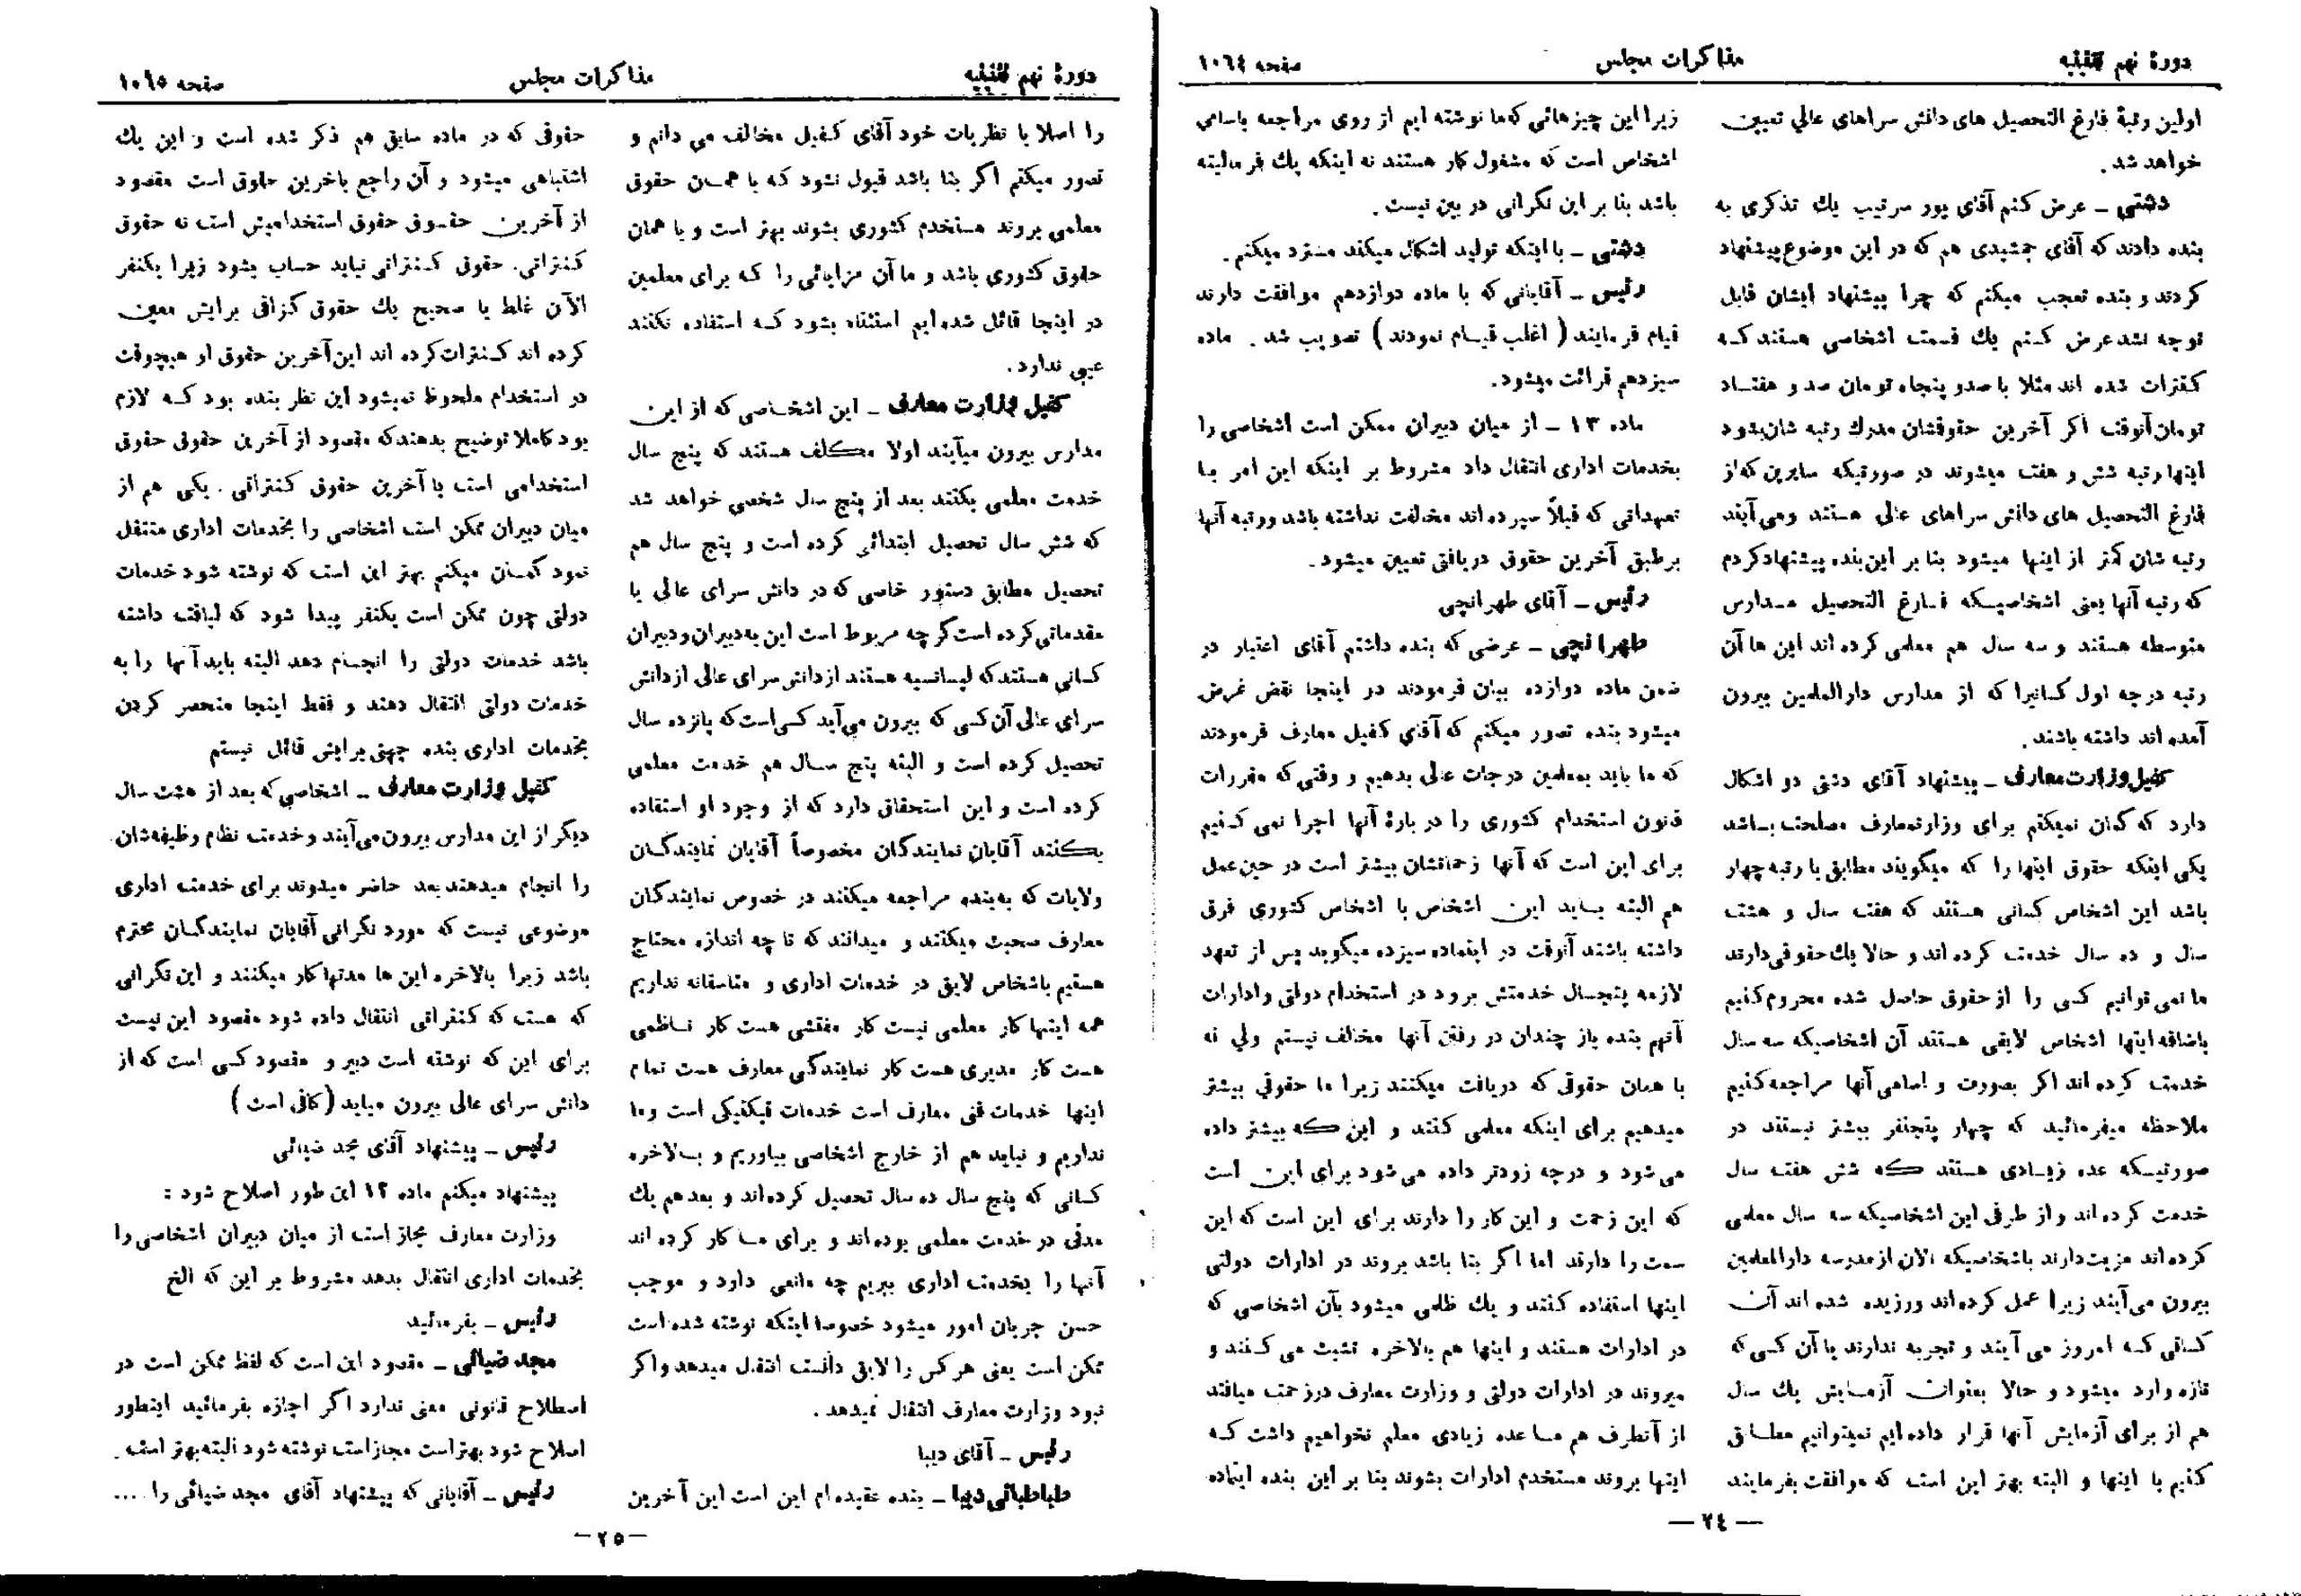 دورهٔ نهم تقنینیه
مذاکرات مجلس
صفحه ۱۰٦٤
اولین رتبهٔ فارغ التحصیل های دانش سراهای عالی تعیین
خواهد شد.
دشتی ــ عرض کنم آقای پور سرتیپ یك تذکری به
بنده دادند که آقای جمشیدی هم که در این موضوع پیشنهاد
کردند و بنده تعجب میکنم که چرا پیشنهاد ایشان قابل
توجه نشد عرض کنم یك قسمت اشخاصی هستند که
کنترات شده اند مثلا با صدو پنجاه تومان صد و هفتاد
تومان آنوقت اگر آخرین حقوقشان مدرك رتبه شان بشود
اینها رتبه شش و هفت میشوند در صورتیکه سایرین که از
فارغ التحصیل های دانش سراهای عالی هستند و می آیند
رتبه شان کمتر از اینها میشود بنا بر این بنده پیشنهاد کردم
که رتبه آنها یعنی اشخاصیکه فارغ التحصیل مدارس
متوسطه هستند و سه سال هم معلمی کرده اند این ها آن
رتبه درجه اول کسانیرا که از مدارس دارالمعلمین بیرون
آمده اند داشته باشند.
کفیل وزارت معارف ــ پیشنهاد آقای دشتی دو اشکال
دارد که گمان نمیکنم برای وزارتمعارف مصلحت باشد
یکی اینکه حقوق اینها را که میگویند مطابق با رتبه چهار
باشد این اشخاص کسانی هستند که هفت سال و هشت
سال و ده سال خدمت کرده اند و حالا یك حقوقی دارند
ما نمی توانیم کسی را از حقوق حاصل شده محروم کنیم
باضافه اینها اشخاص لایقی هستند آن اشخاصیکه سه سال
خدمت کرده اند اگر بصورت و اسامی آنها مراجعه کنیم
ملاحظه میفرمائید که چهار پنجنفر بیشتر نیستند در
صورتیکه عده زیادی هستند که شش هفت سال
خدمت کرده اند و از طرفی این اشخاصیکه سه سال معلمی
کرده اند مزیت دارند باشخاصیکه الان از مدرسه دارالمعلمین
بیرون می آیند زیرا عمل کرده اند ورزیده شده اند آن
کسانی که امروز می آیند و تجربه ندارند یا آن کسی که
تازه وارد میشود و حالا بعنوان آزمایش یك سال
هم از برای آزمایش آنها قرار داده ایم نمیتوانیم مطابق
کنیم با اینها و البته بهتر این است که موافقت بفرمایند
زیرا این چیزهائی که ما نوشته ایم از روی مراجعه باسامی
اشخاص است که مشغول کار هستند نه اینکه یك فرمالیته
باشد بنا بر این نگرانی در بین نیست.
دشتی ــ با اینکه تولید اشکال میکند مسترد میکنم.
رئیس ــ آقایانی که با ماده دوازدهم موافقت دارند
قیام فرمایند (اغلب قیام نمودند) تصویب شد. ماده
سیزدهم قرائت میشود.
ماده ۱۳ ــ از میان دبیران ممکن است اشخاصی را
بخدمات اداری انتقال داد مشروط بر اینکه این امر با
تعهداتی که قبلاً سپرده اند مخالفت نداشته باشد و رتبه آنها
بر طبق آخرین حقوق دریافتی تعیین میشود.
رئیس ــ آقای طهرانچی
طهرانچی ــ عرضی که بنده داشتم آقای اعتبار در
ضمن ماده دوازده بیان فرمودند در اینجا نقض غرض
میشود بنده تصور میکنم که آقای کفیل معارف فرمودند
که ما باید بمعلمین درجات عالی بدهیم و وقتی که مقررات
قانون استخدام کشوری را در بارهٔ آنها اجرا نمی کنیم
برای این است که آنها زحماتشان بیشتر است در حین عمل
هم البته باید این اشخاص با اشخاص کشوری فرق
داشته باشند آنوقت در اینماده سیزده میگوید پس از تعهد
لازمه پنجسال خدمتش برود در استخدام دولتی و ادارات
آنهم بنده باز چندان در رفتن آنها مخالف نیستم ولی نه
با همان حقوقی که دریافت میکنند زیرا ما حقوقی بیشتر
میدهیم برای اینکه معلمی کنند و این که بیشتر داده
می شود و درجه زودتر داده می شود برای این است
که این زحمت و این کار را دارند برای این است که این
سمت را دارند اما اگر بنا باشد بروند در ادارات دولتی
اینها استفاده کنند و یك ظلمی میشود بآن اشخاصی که
در ادارات هستند و اینها هم بالاخره تشبث می کنند و
میروند در ادارات دولتی و وزارت معارف در زحمت میافتد
از آنطرف هم ما عده زیادی معلم نخواهیم داشت که
اینها بروند مستخدم ادارات بشوند بنا بر این بنده اینماده
— ۲٤ —
دورهٔ نهم تقنینیه
مذاکرات مجلس
صفحه ۱۰٦۵
را اصلا با نظریات خود آقای کفیل مخالف می دانم و
تصور میکنم اگر بنا باشد قبول نشود که با همان حقوق
معلمی بروند مستخدم کشوری بشوند بهتر است و با همان
حقوق کشوری باشد و ما آن مزایائی را که برای معلمین
در اینجا قائل شده ایم استثناء بشود که استفاده نکنند
عیبی ندارد.
کفیل وزارت معارف ــ این اشخاصی که از این
مدارس بیرون میآیند اولا مکلف هستند که پنج سال
خدمت معلمی بکنند بعد از پنج سال شخصی خواهد شد
که شش سال تحصیل ابتدائی کرده است و پنج سال هم
تحصیل مطابق دستور خاصی که در دانش سرای عالی یا
مقدماتی کرده است گر چه مربوط است این به دبیران و دبیران
کسانی هستند که لیسانسیه هستند از دانش سرای عالی از دانش
سرای عالی آن کسی که بیرون می آید کسی است که پانزده سال
تحصیل کرده است و البته پنج سال هم خدمت معلمی
کرده است و این استحقاق دارد که از وجود او استفاده
بکنند آقایان نمایندگان مخصوصاً آقایان نمایندگان
ولایات که به بنده مراجعه میکنند در خصوص نمایندگان
معارف صحبت میکنند و میدانند که تا چه اندازه محتاج
هستیم باشخاص لایق در خدمات اداری و متاسفانه نداریم
همه اینها کار معلمی نیست کار مفتشی هست کار ناظمی
هست کار مدیری هست کار نمایندگی معارف هست تمام
اینها خدمات فنی معارف است خدمات تیکنیکی است و ما
نداریم و نباید هم از خارج اشخاصی بیاوریم و بالاخره
کسانی که پنج سال ده سال تحصیل کرده اند و بعد هم یك
مدتی در خدمت معلمی بوده اند و برای ما کار کرده اند
آنها را بخدمت اداری ببریم چه مانعی دارد و موجب
حسن جریان امور میشود خصوصا اینکه نوشته شده است
ممکن است یعنی هر کس را لایق دانست انتقال میدهد و اگر
نبود وزارت معارف انتقال نمیدهد.
رئیس ــ آقای دیبا
طباطبائی دیبا ــ بنده عقیده ام این است این آخرین
حقوقی که در ماده سابق هم ذکر شده است و این یك
اشتباهی میشود و آن راجع باخرین حقوق است مقصود
از آخرین حقوق حقوق استخدامیش است نه حقوق
کنتراتی. حقوق کنتراتی نباید حساب بشود زیرا یکنفر
الآن غلط یا صحیح یك حقوق گزافی برایش معین
کرده اند کنترات کرده اند این آخرین حقوق او هیچوقت
در استخدام ملحوظ نمیشود این نظر بنده بود که لازم
بود کاملا توضیح بدهند که مقصود از آخرین حقوق حقوق
استخدامی است یا آخرین حقوق کنتراتی. یکی هم از
میان دبیران ممکن است اشخاصی را بخدمات اداری منتقل
نمود گمان میکنم بهتر این است که نوشته شود خدمات
دولتی چون ممکن است یکنفر پیدا شود که لیاقت داشته
باشد خدمات دولتی را انجام دهد البته باید آنها را به
خدمات دولتی انتقال دهند و فقط اینجا منحصر کردن
بخدمات اداری بنده جهتی برایش قائل نیستم
کفیل وزارت معارف ــ اشخاصی که بعد از هشت سال
دیگر از این مدارس بیرون می آیند و خدمت نظام وظیفه شان
را انجام میدهند بعد حاضر میشوند برای خدمت اداری
موضوعی نیست که مورد نگرانی آقایان نمایندگان محترم
باشد زیرا بالاخره این ها مدتها کار میکنند و این نگرانی
که هست که کنتراتی انتقال داده شود مقصود این نیست
برای این که نوشته است دبیر و مقصود کسی است که از
دانش سرای عالی بیرون میاید (کافی است)
رئیس ــ پیشنهاد آقای مجد ضیائی
پیشنهاد میکنم ماده ۱۳ این طور اصلاح شود:
وزارت معارف مجاز است از میان دبیران اشخاصی را
بخدمات اداری انتقال بدهد مشروط بر این که الخ
رئیس ــ بفرمائید
مجد ضیائی ــ مقصود این است که لفظ ممکن است در
اصطلاح قانونی معنی ندارد اگر اجازه بفرمائید اینطور
اصلاح شود بهتر است مجاز است نوشته شود البته بهتر است.
رئیس ــ آقایانی که پیشنهاد آقای مجد ضیائی را ....
—۲۵—